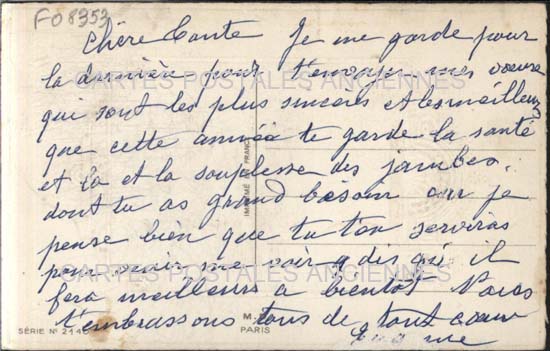 FO 8353
Chère Tante Je me garde pour
la dernière pour t'envoyer mes voeux
CARTES POSTALES ANCIENNES
qui sont les plus sincères et les meilleurs
que cette année te garde la santé
et la et la souplesse des jambes
dont tu as grand besoin car je
pense bien que tu t'en serviras
pour venir me voir dis qu'il
CARTES POSTALES ANCIENNES
fera meilleurs a bientôt Nous
t'embrassons tous de tout coeur
IMPRIMÉ EN FRANCE
SÉRIE N° 214
M.
PARIS